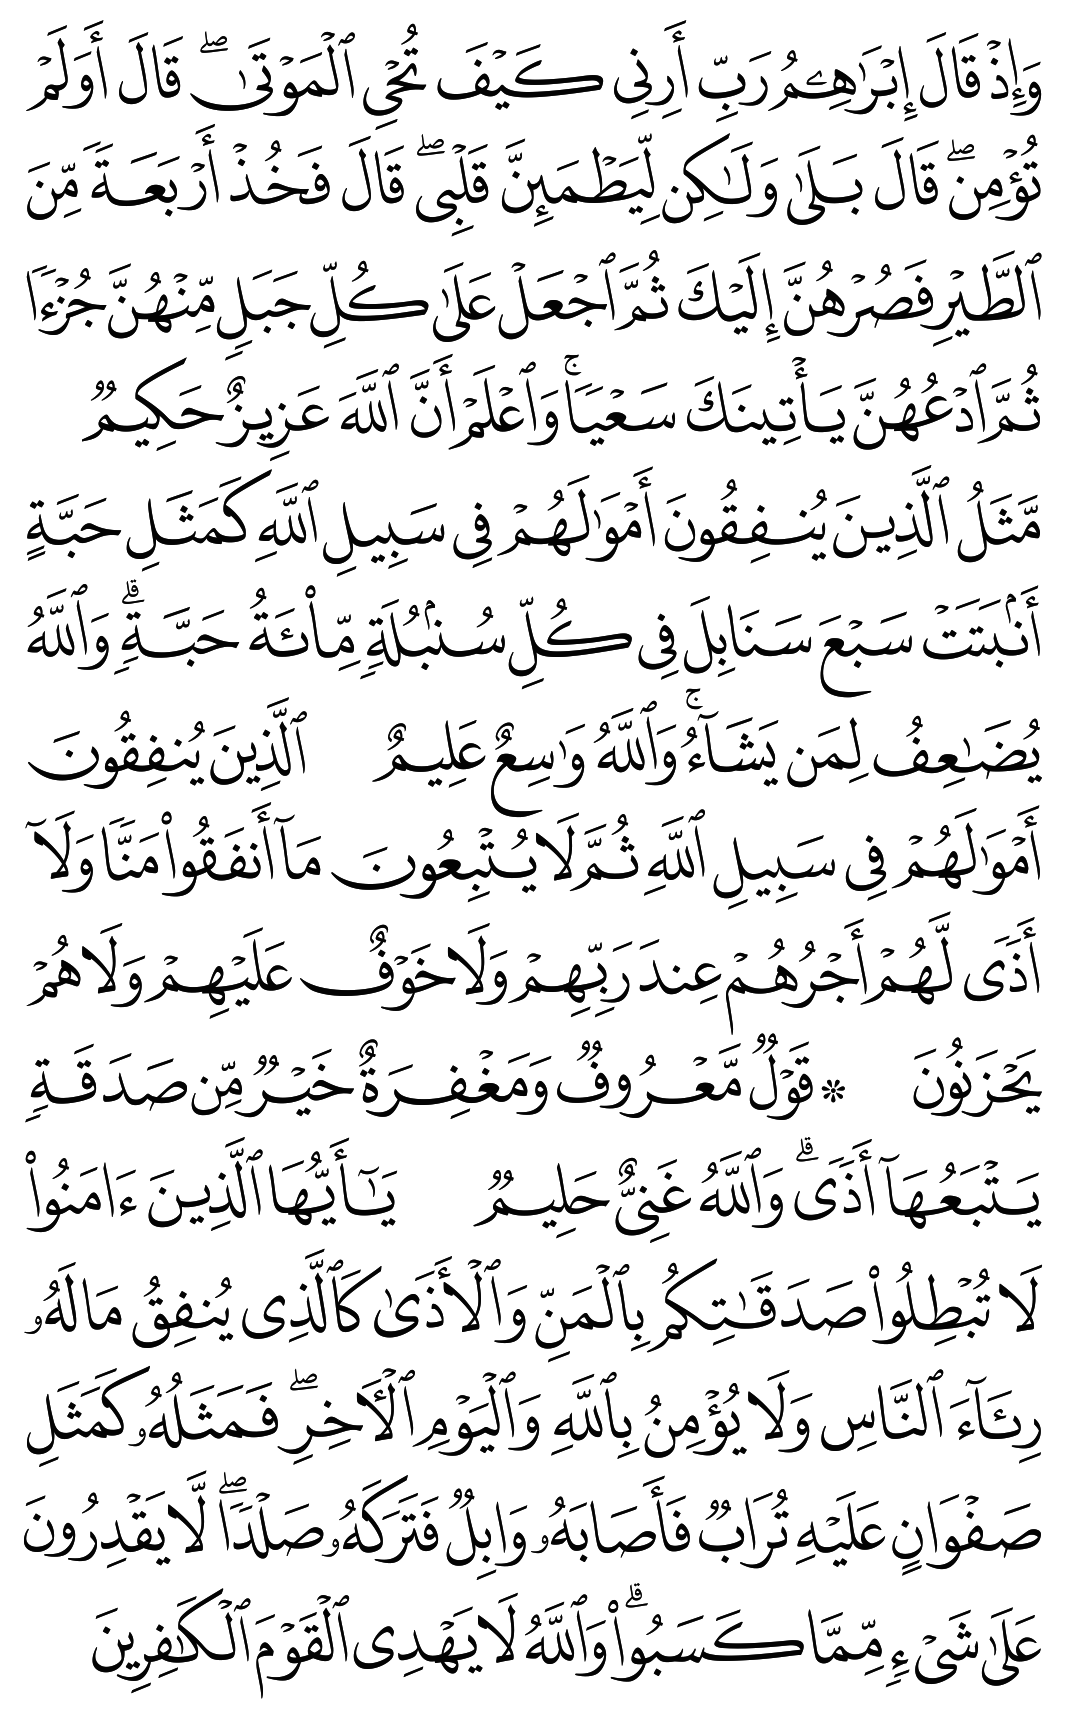 وَإِذۡ قَالَ إِبۡرَٰهِـۧمُ رَبِّ أَرِنِي كَيۡفَ تُحۡيِ ٱلۡمَوۡتَىٰۖ قَالَ أَوَلَمۡ
تُؤۡمِنۖ قَالَ بَلَىٰ وَلَٰكِن لِّيَطۡمَئِنَّ قَلۡبِيۖ قَالَ فَخُذۡ أَرۡبَعَةٗ مِّنَ
ٱلطَّيۡرِ فَصُرۡهُنَّ إِلَيۡكَ ثُمَّ ٱجۡعَلۡ عَلَىٰ كُلِّ جَبَلٖ مِّنۡهُنَّ جُزۡءٗا
ثُمَّ ٱدۡعُهُنَّ يَأۡتِينَكَ سَعۡيٗاۚ وَٱعۡلَمۡ أَنَّ ٱللَّهَ عَزِيزٌ حَكِيمٞ
مَّثَلُ ٱلَّذِينَ يُنفِقُونَ أَمۡوَٰلَهُمۡ فِي سَبِيلِ ٱللَّهِ كَمَثَلِ حَبَّةٍ
أَنۢبَتَتۡ سَبۡعَ سَنَابِلَ فِي كُلِّ سُنۢبُلَةٖ مِّاْئَةُ حَبَّةٖۗ وَٱللَّهُ
يُضَٰعِفُ لِمَن يَشَآءُۚ وَٱللَّهُ وَٰسِعٌ عَلِيمٌ ٱلَّذِينَ يُنفِقُونَ
أَمۡوَٰلَهُمۡ فِي سَبِيلِ ٱللَّهِ ثُمَّ لَا يُتۡبِعُونَ مَآ أَنفَقُواْ مَنّٗا وَلَآ
أَذٗى لَّهُمۡ أَجۡرُهُمۡ عِندَ رَبِّهِمۡ وَلَا خَوۡفٌ عَلَيۡهِمۡ وَلَا هُمۡ
يَحۡزَنُونَ ۞ قَوۡلٞ مَّعۡرُوفٞ وَمَغۡفِرَةٌ خَيۡرٞ مِّن صَدَقَةٖ
يَتۡبَعُهَآ أَذٗىۗ وَٱللَّهُ غَنِيٌّ حَلِيمٞ يَٰٓأَيُّهَا ٱلَّذِينَ ءَامَنُواْ
لَا تُبۡطِلُواْ صَدَقَٰتِكُم بِٱلۡمَنِّ وَٱلۡأَذَىٰ كَٱلَّذِي يُنفِقُ مَالَهُۥ
رِئَآءَ ٱلنَّاسِ وَلَا يُؤۡمِنُ بِٱللَّهِ وَٱلۡيَوۡمِ ٱلۡأٓخِرِۖ فَمَثَلُهُۥ كَمَثَلِ
صَفۡوَانٍ عَلَيۡهِ تُرَابٞ فَأَصَابَهُۥ وَابِلٞ فَتَرَكَهُۥ صَلۡدٗاۖ لَّا يَقۡدِرُونَ
عَلَىٰ شَيۡءٖ مِّمَّا كَسَبُواْۗ وَٱللَّهُ لَا يَهۡدِي ٱلۡقَوۡمَ ٱلۡكَٰفِرِينَ